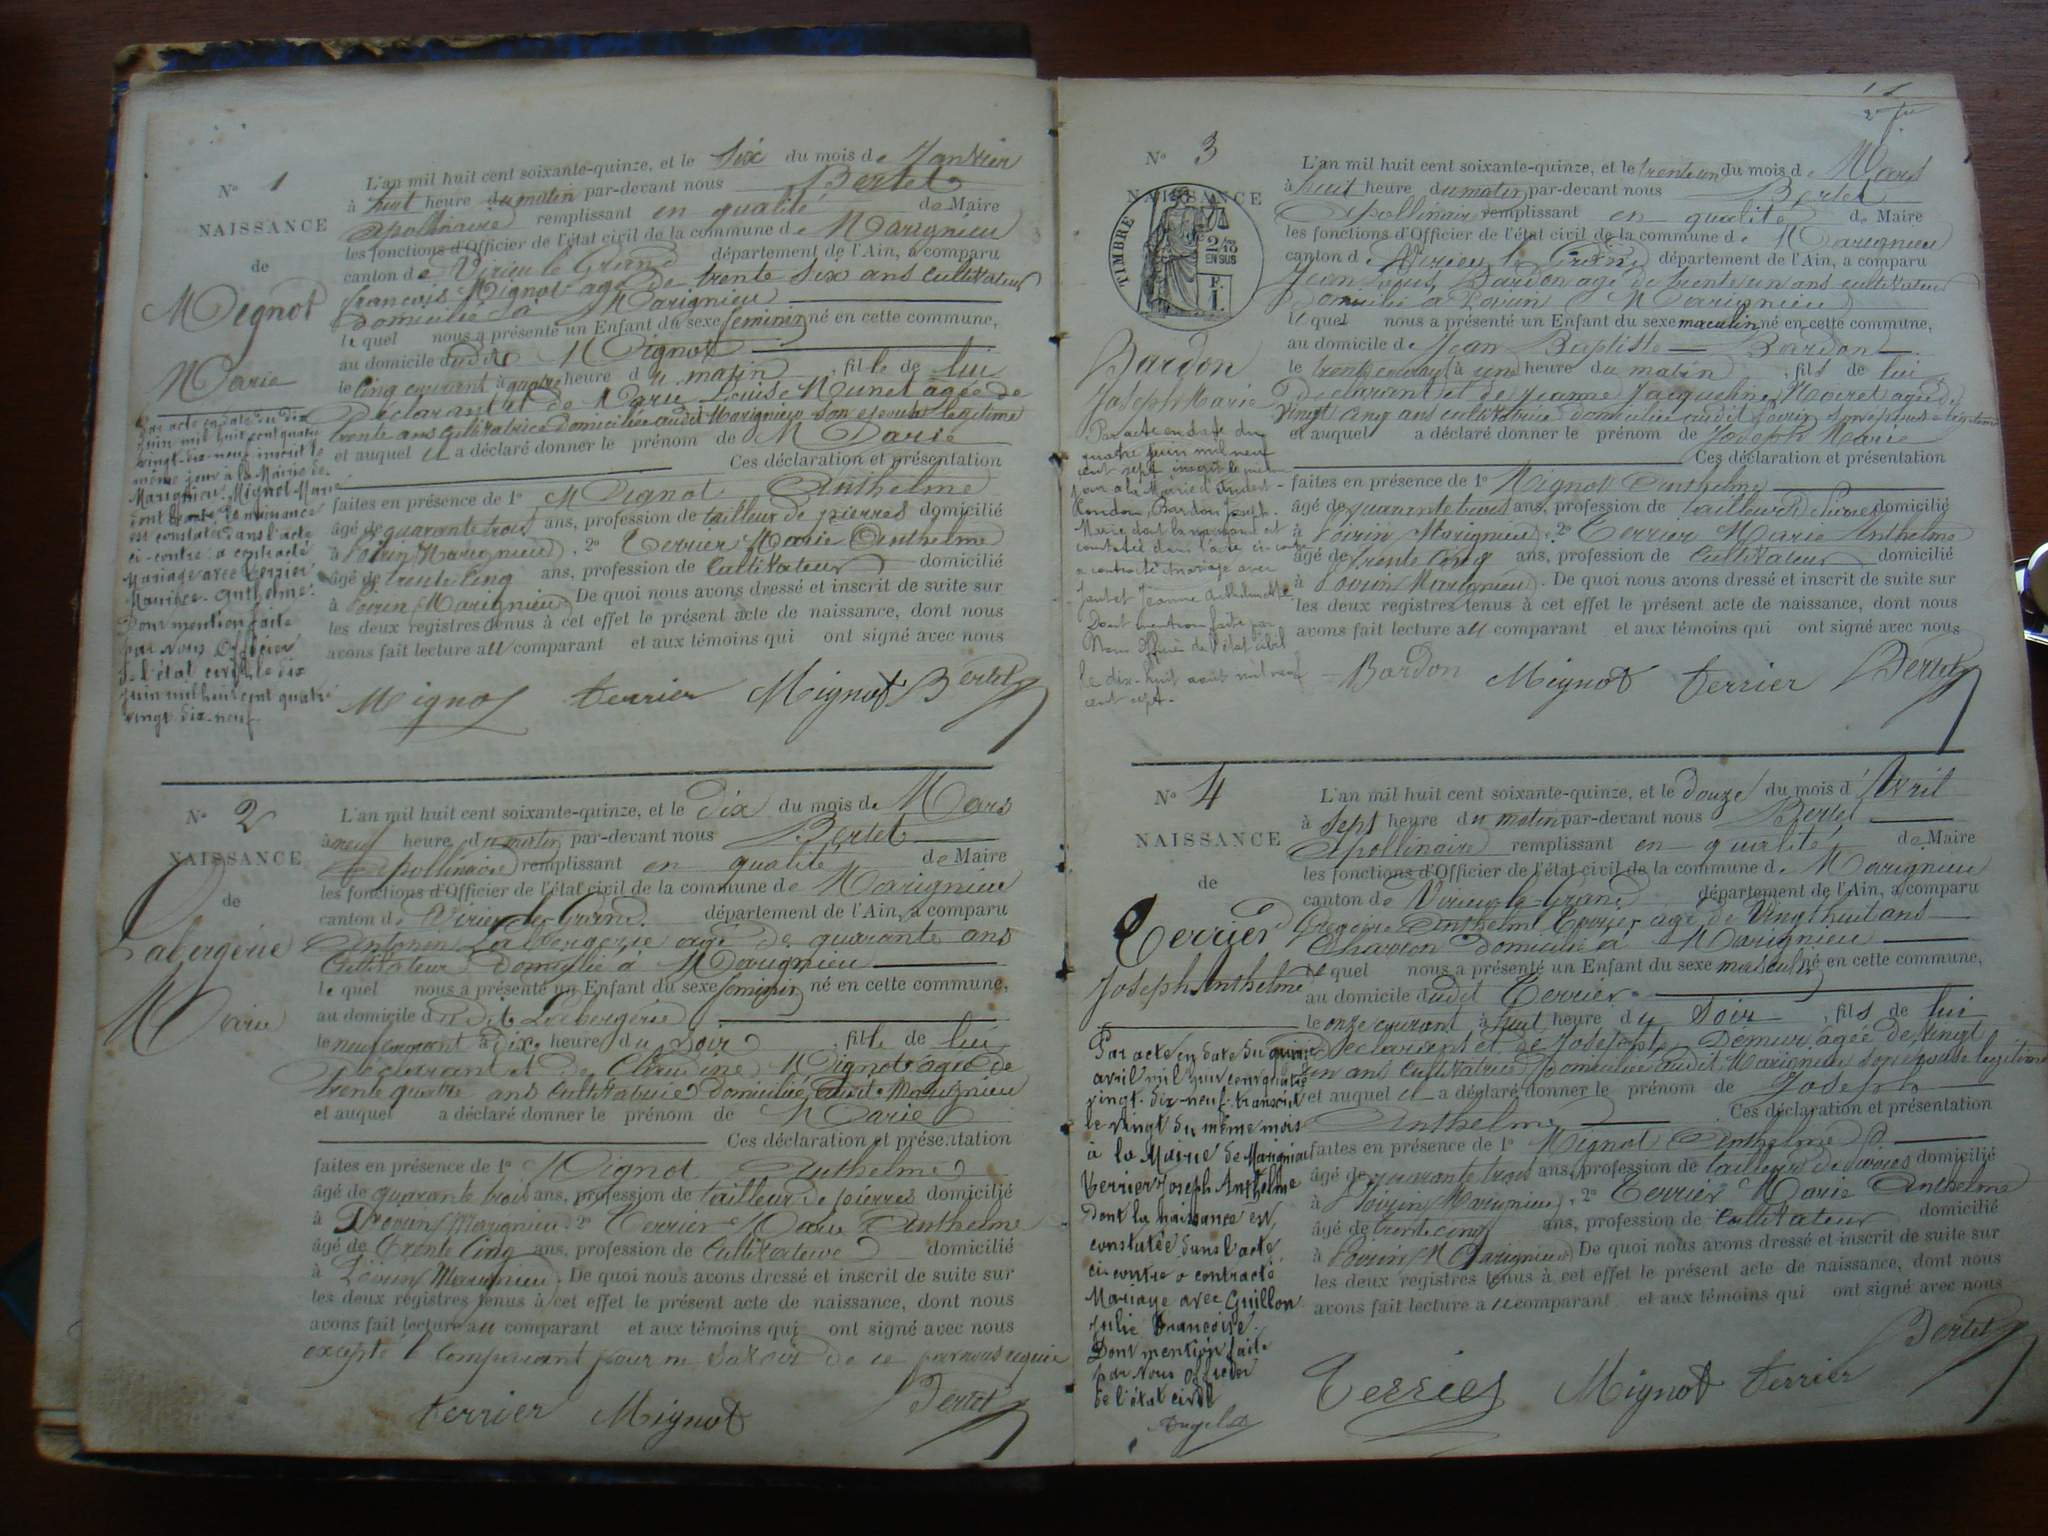 N° 1
NAISSANCE
de
Mignot
Marie
Par acte en date du dix
juin mil huit cent quatre
vingt-dix-neuf inscrit le
même jour à la Mairie de
Marignieu, Mignot Marie
dont la naissance
est constatée dans l'acte
ci-contre a contracté
Mariage avec Terrier
Anthelme.
Dont mention faite
par Nous Officier
de l'état civil le dix
juin mil huit cent quatre
vingt dix-neuf.
L'an mil huit cent soixante-quinze, et le Six du mois de Janvier
à huit heure du matin par-devant nous Bertet
Apollinaire remplissant en qualité de Maire
les fonctions d'Officier de l'état civil de la commune de Marignieu
canton de Virieu le Grand département de l'Ain, a comparu
François Mignot agé de trente six ans Cultivateur
domicilié à Marignieu
le quel nous a présenté un Enfant du sexe feminin né en cette commune,
au domicile dudit Mignot
le Cinq courant à quatre heure du matin, fille de lui
Déclarant et de Marie Louise Munet agée de
trente ans cultivatrice domiciliée audit Marignieu son épouse légitime
et auquel il a déclaré donner le prénom de Marie
Ces déclaration et présentation
faites en présence de 1° Mignot Anthelme
âgé de quarante trois ans, profession de tailleur de pierres domicilié
à Poirin Marignieu, 2° Terrier Marie Anthelme
âgé de trente cinq ans, profession de Cultivateur domicilié
à Poirin Marignieu De quoi nous avons dressé et inscrit de suite sur
les deux registres tenus à cet effet le présent acte de naissance, dont nous
avons fait lecture au comparant et aux témoins qui ont signé avec nous
Mignot terrier Mignot Bertet
N° 2
NAISSANCE
de
Labergerie
Marie
L'an mil huit cent soixante-quinze, et le dix du mois de Mars
à neuf heure du matin par-devant nous Bertet
Apollinaire remplissant en qualité de Maire
les fonctions d'Officier de l'état civil de la commune de Marignieu
canton de Virieu le Grand département de l'Ain, a comparu
Antonin Labergerie agé de quarante ans
Cultivateur Domicilié à Marignieu
le quel nous a présenté un Enfant du sexe feminin né en cette commune,
au domicile dudit Labergerie
le neuf courant à dix heure du soir, fille de lui
déclarant et de Claudine Mignot agée de
trente quatre ans Cultivatrice domiciliée audit Marignieu
et auquel a déclaré donner le prénom de Marie
Ces déclaration et présentation
faites en présence de 1° Mignot Anthelme
âgé de quarante trois ans, profession de tailleur de pierres domicilié
à Poirin Marignieu 2° Terrier Marie Anthelme
âgé de trente Cinq ans, profession de Cultivateur domicilié
à Poirin Marignieu. De quoi nous avons dressé et inscrit de suite sur
les deux registres tenus à cet effet le présent acte de naissance, dont nous
avons fait lecture au comparant et aux témoins qui ont signé avec nous
excepté le Comparant pour ne savoir de ce par nous requis
terrier Mignot Bertet
N° 3
NAISSANCE
TIMBRE
2/10
EN SUS
Bardon
Joseph Marie
Par acte en date du
quatre juin mil neuf
cent sept inscrit le même
jour à la Mairie d'Andert-
Condon, Bardon Joseph-
Marie dont la naissance est
constatée dans l'acte ci-contre
a contracté mariage avec
Jeanne Anthelmette
Dont mention faite par
Nous Officier de l'état civil
le dix-huit août mil neuf
cent sept.
L'an mil huit cent soixante-quinze, et le trente un du mois de Mars
à huit heure du matin par-devant nous Bertet
Apollinaire remplissant en qualité de Maire
les fonctions d'Officier de l'état civil de la commune de Marignieu
canton de Virieu le Grand département de l'Ain, a comparu
Jean Louis Bardon agé de trente un ans cultivateur
Domicilié à Poirin Marignieu
le quel nous a présenté un Enfant du sexe masculin né en cette commune,
au domicile de Jean Baptiste Bardon
le trente courant à une heure du matin, fils de lui
Déclarant et de Jeanne Jacqueline Moiret agée de
vingt cinq ans cultivatrice domiciliée audit Poirin son épouse légitime
et auquel a déclaré donner le prénom de Joseph Marie
Ces déclaration et présentation
faites en présence de 1° Mignot Anthelme
âgé de quarante trois ans, profession de tailleur de Pierres domicilié
à Poirin Marignieu, 2° Terrier Marie Anthelme
âgé de trente cinq ans, profession de Cultivateur domicilié
à Poirin Marignieu. De quoi nous avons dressé et inscrit de suite sur
les deux registres tenus à cet effet le présent acte de naissance, dont nous
avons fait lecture au comparant et aux témoins qui ont signé avec nous
Bardon Mignot terrier Bertet
N° 4
NAISSANCE
de
Terrier
Joseph Anthelme
Par acte en date du quinze
avril mil huit cent quatre
vingt-dix-neuf transcrit
le vingt du même mois
à la Mairie de Marignieu
Terrier Joseph Anthelme
dont la naissance est
constatée dans l'acte
ci-contre a contracté
Mariage avec Guillon
Julie Françoise.
Dont mention faite
par Nous Officier
de l'état civil
L'an mil huit cent soixante-quinze, et le douze du mois d'Avril
à sept heure du matin par-devant nous Bertet
Apollinaire remplissant en qualité de Maire
les fonctions d'Officier de l'état civil de la commune de Marignieu
canton de Virieu le Grand département de l'Ain, a comparu
Grégoire Anthelme Terrier agé de Vingt huit ans
Charron Domicilié à Marignieu
le quel nous a présenté un Enfant du sexe masculin né en cette commune,
au domicile dudit Terrier
le onze courant à huit heure du Soir, fils de lui
déclarant et de Josephte Demeur agée de vingt
un ans Cultivatrice Domiciliée audit Marignieu son épouse légitime
et auquel il a déclaré donner le prénom de Joseph
Anthelme Ces déclaration et présentation
faites en présence de 1° Mignot Anthelme
âgé de quarante trois ans, profession de tailleur de pierres domicilié
à Poirin Marignieu, 2° Terrier Marie Anthelme
âgé de trente cinq ans, profession de Cultivateur domicilié
à Poirin Marignieu De quoi nous avons dressé et inscrit de suite sur
les deux registres tenus à cet effet le présent acte de naissance, dont nous
avons fait lecture au comparant et aux témoins qui ont signé avec nous
Terrier Mignot terrier Bertet